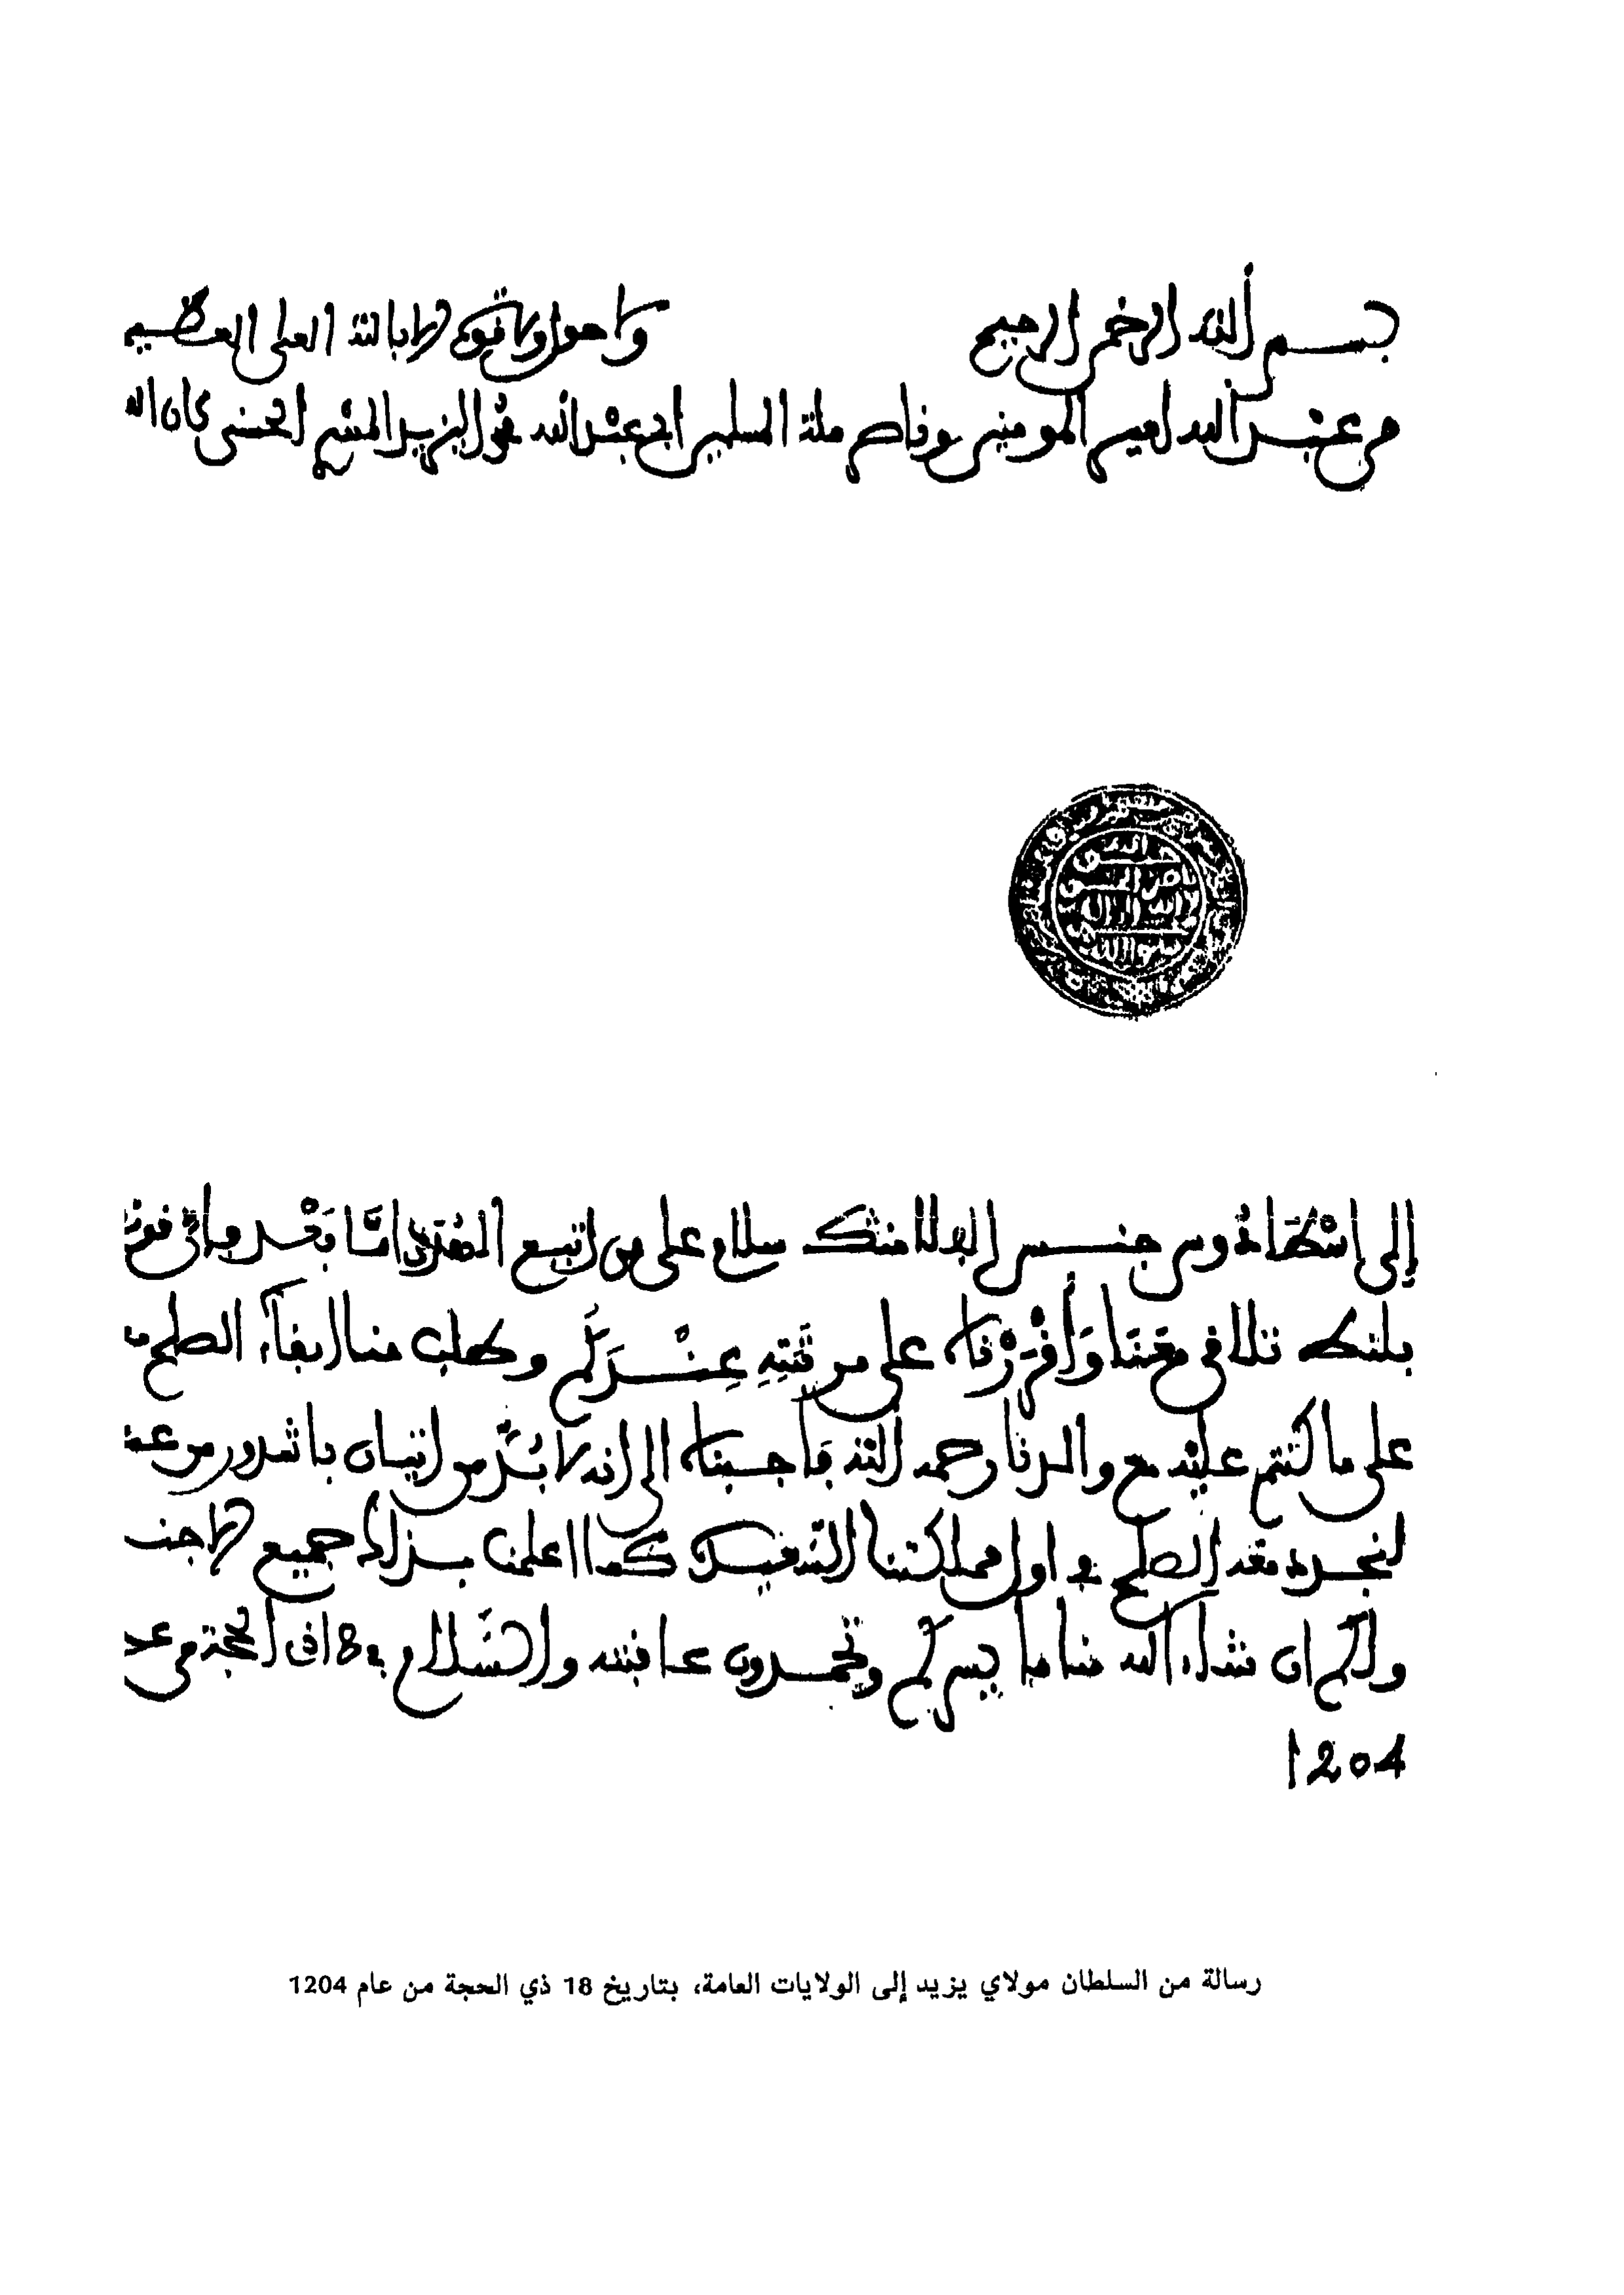 بسم الله الرحمن الرحيم ولا حول ولا قوة إلا بالله العلي العظيم
من عبد الله أمير المومنين وناصر ملة المسلمين أبي عبد الله اليزيد الحسني كان الله
إلى اسطادوس جنس الفلامنك سلام على من اتبع الهدى أمَّا بَعْد
تلافى معنا وَأَقْرَرْناه على مرتبته عِنْدَكُم وطلب منا إبقاء الصلح
على ما كنتم عليه مع والدنا رحمه الله فأجبناه إلى أنه لا بُدَّ من إتيان باشدور من
لنجدد معه الصلح في أول مملكتنا كما أعلمنا بذلك جميع
ولكم إن شاء الله منا ما يسركم وتحمدون عاقبته والسَّلام في 18 الحجة
1204
رسالة من السلطان مولاي يزيد إلى الولايات العامة، بتاريخ 18 ذي الحجة من عام 1204